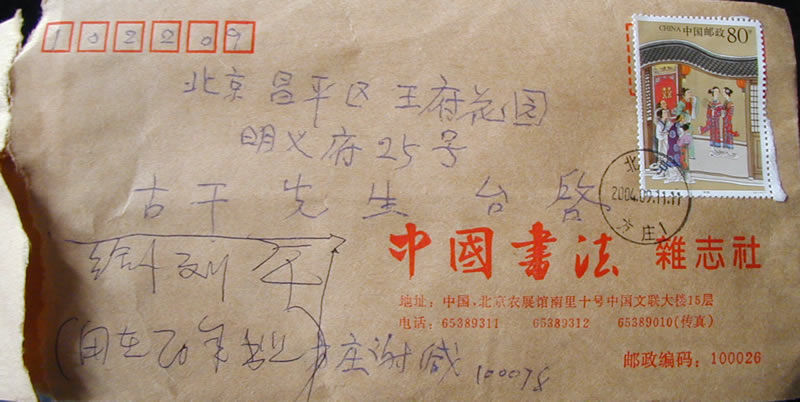 102209
CHINA 中国邮政 80分
北京昌平区王府花园
明义府25号
古干先生台启
北京
2004.09.11.11
方庄1
中國書法 雜志社
地址：中国，北京农展馆南里十号中国文联大楼15层
电话：65389311 65389312 65389010(传真)
邮政编码：100026
方庄谢
100078